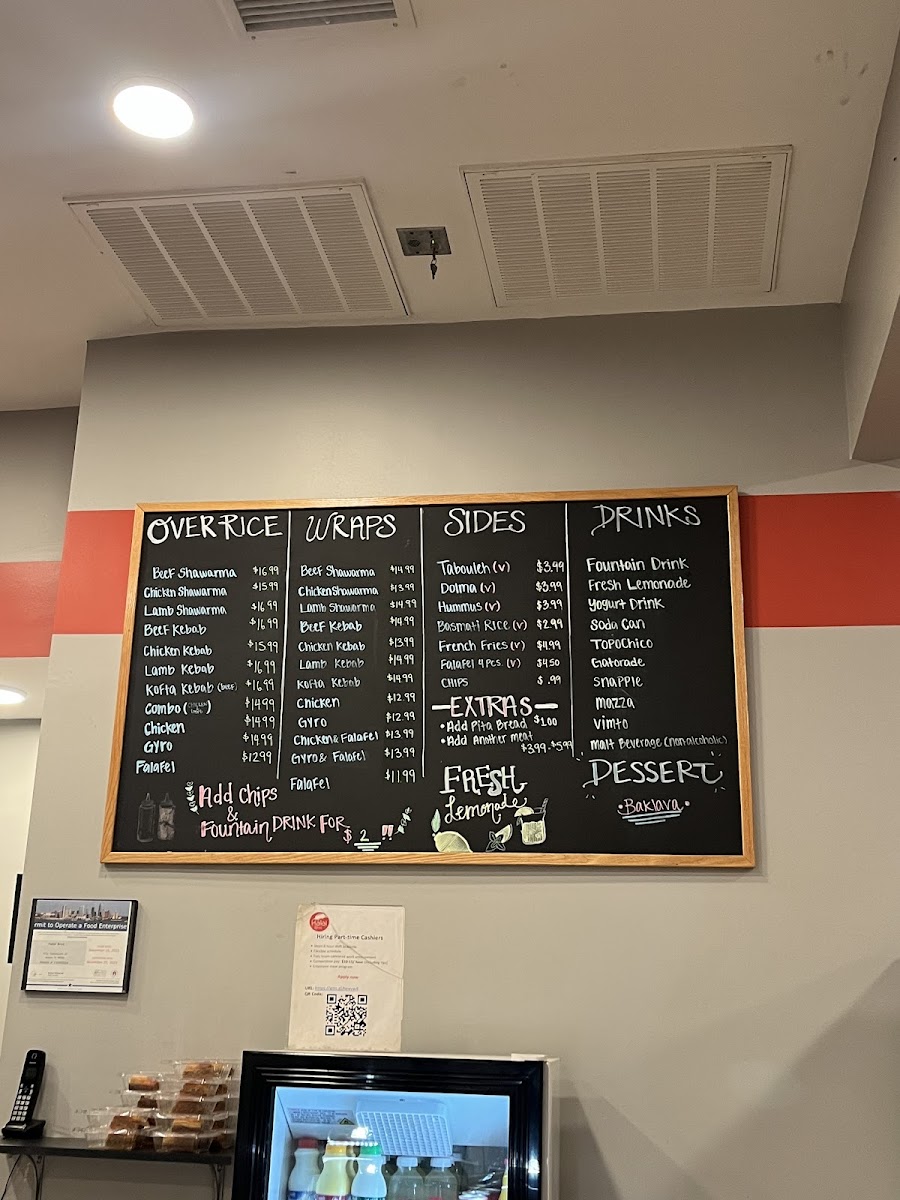 OVER RICE
Beef Shawarma $16.99
Chicken Shawarma $15.99
Lamb Shawarma $16.99
Beef Kebab $16.99
Chicken Kebab $15.99
Lamb Kebab $16.99
Kofta Kebab (beef) $16.99
Combo $14.99
Chicken $14.99
Gyro $14.99
Falafel $12.99
Add Chips
&
Fountain DRINK FOR
$2!!
WRAPS
Beef Shawarma $14.99
Chicken Shawarma $13.99
Lamb Shawarma $14.99
Beef Kebab $14.99
Chicken Kebab $13.99
Lamb Kebab $14.99
Kofta Kebab $14.99
Chicken $12.99
Gyro $12.99
Chicken & Falafel $13.99
Gyro & Falafel $13.99
Falafel $11.99
SIDES
Tabouleh (v) $3.99
Dolma (v) $3.99
Hummus (v) $3.99
Basmati Rice (v) $2.99
French Fries (v) $4.99
Falafel 4 Pcs (v) $4.50
CHIPS $.99
EXTRAS
• Add Pita Bread $1.00
• Add Another meat
$3.99-$5.99
FRESH
Lemonade
DRINKS
Fountain Drink
Fresh Lemonade
Yogurt Drink
Soda Can
TOPOCHICO
Gatorade
Snapple
Mazza
Vimto
Malt Beverage (nonalcoholic)
DESSERT
• Baklava •
rmit to Operate a Food Enterprise
Hiring Part-time Cashiers
Apply now
QR Code: